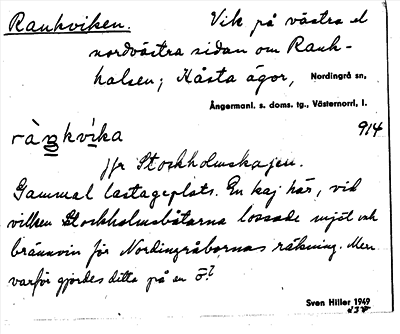 Raukviken. Vik på västra el
nordvästra sidan om Rauk-
halsen; Håsta ägor, Nordingrå sn,
Ångermanl. s. doms. tg., Västernorrl. l.
914
jfr Stockholmskajen.
Gammal lastageplats. En kaj här, vid
vilken Stockholmsbåtarna lossade mjöl och
brännvin för Nordingråbornas räkning. Men
varför gjordes detta på en ö?
Sven Hiller 1949